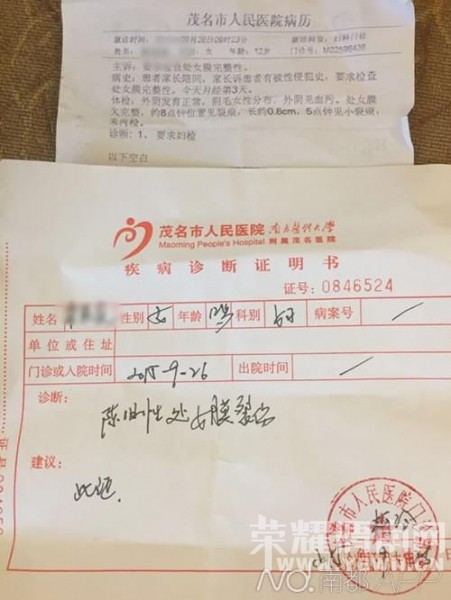 茂名市人民医院病历
就诊时间: 月26日09时23分
姓名: 女 年龄: 12岁 门诊号:
主诉: 检查处女膜完整性。
病史:患者家长陪同,家长诉患者有被性侵犯史,要求检查
处女膜完整性。今天月经第3天。
体检:外阴发育正常,阴毛女性分布,外阴见血污。处女膜
欠完整,约8点钟位置见裂痕,长约0.6cm,5点钟见小裂痕,
未内检。
诊断:1、要求妇检
以下空白
茂名市人民医院 南方医科大学
Maoming People's Hospital 附属茂名医院
疾病诊断证明书
证号:0846524
姓名 性别 女 年龄 科别 妇 病案号 /
单位或住址
门诊或入院时间 2015-9-26 出院时间 /
诊断:
陈旧性处女膜裂伤
建议:
此证.
市人民医院门
荣耀渭州网
NO.南都APP